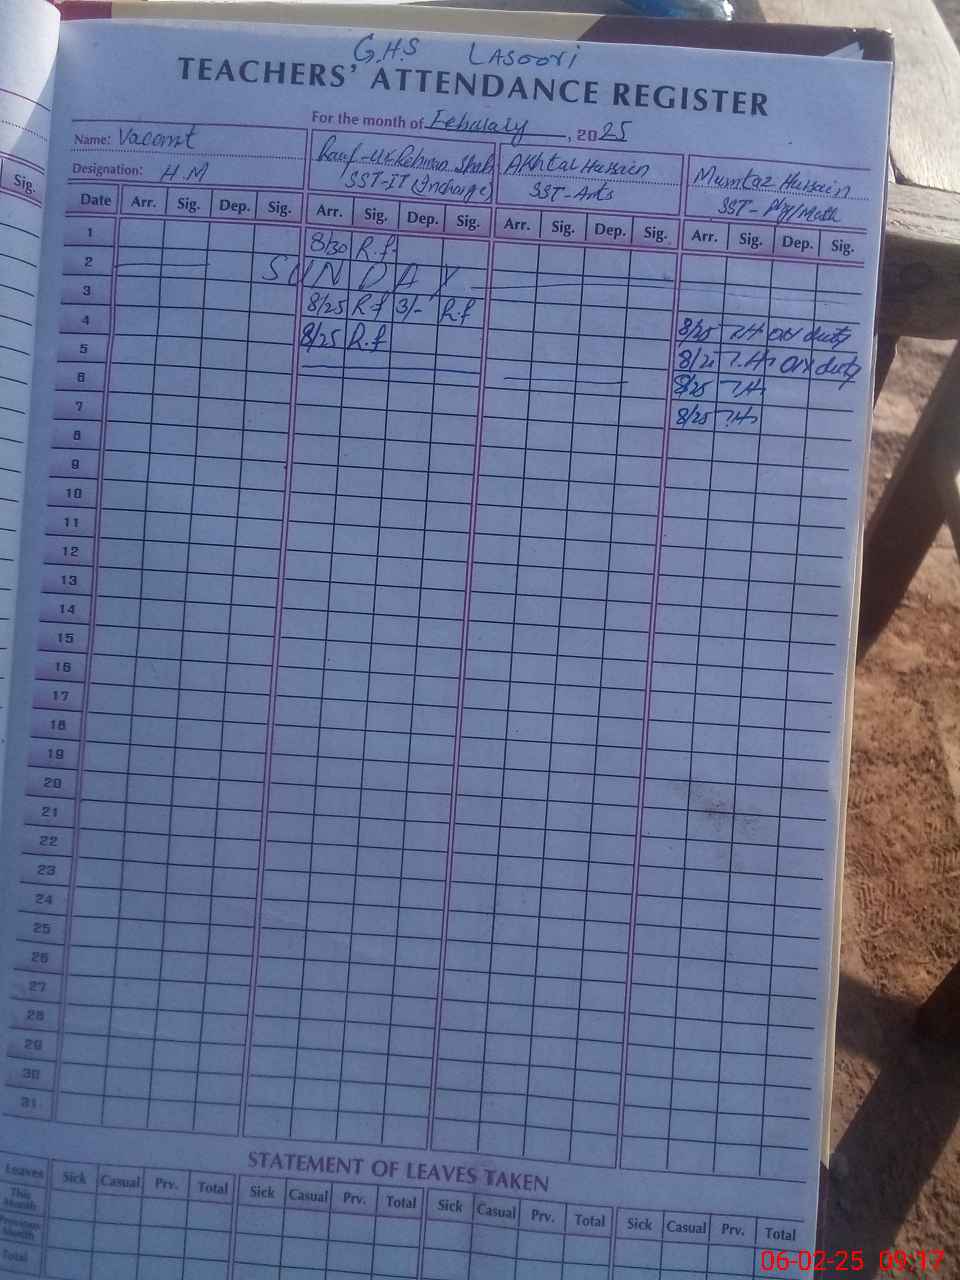 G.H.S LASOORI
TEACHERS' ATTENDANCE REGISTER
For the month of Febulaly, 2025
Name: Vacant
Designation: H M
Rauf-Ur-Rehman Shah
SST-IT (Incharge)
Akhtal Hussain
SST-Arts
Mumtaz Hussain
SST- Phy/Math
Sig.
Date Arr. Sig. Dep. Sig. Arr. Sig. Dep. Sig. Arr. Sig. Dep. Sig. Arr. Sig. Dep. Sig.
1 8/30 R.f
2 SUNDAY
3 8/25 R.f 3/- R.f
4 8/25 R.f 8/25 on duty
5 8/25 on duty
6 8/25
7 8/25
8
9
10
11
12
13
14
15
16
17
18
19
20
21
22
23
24
25
26
27
28
29
30
31
STATEMENT OF LEAVES TAKEN
Leaves Sick Casual Prv. Total Sick Casual Prv. Total Sick Casual Prv. Total Sick Casual Prv. Total
This Month
Previous Month
Total
06-02-25 09:17